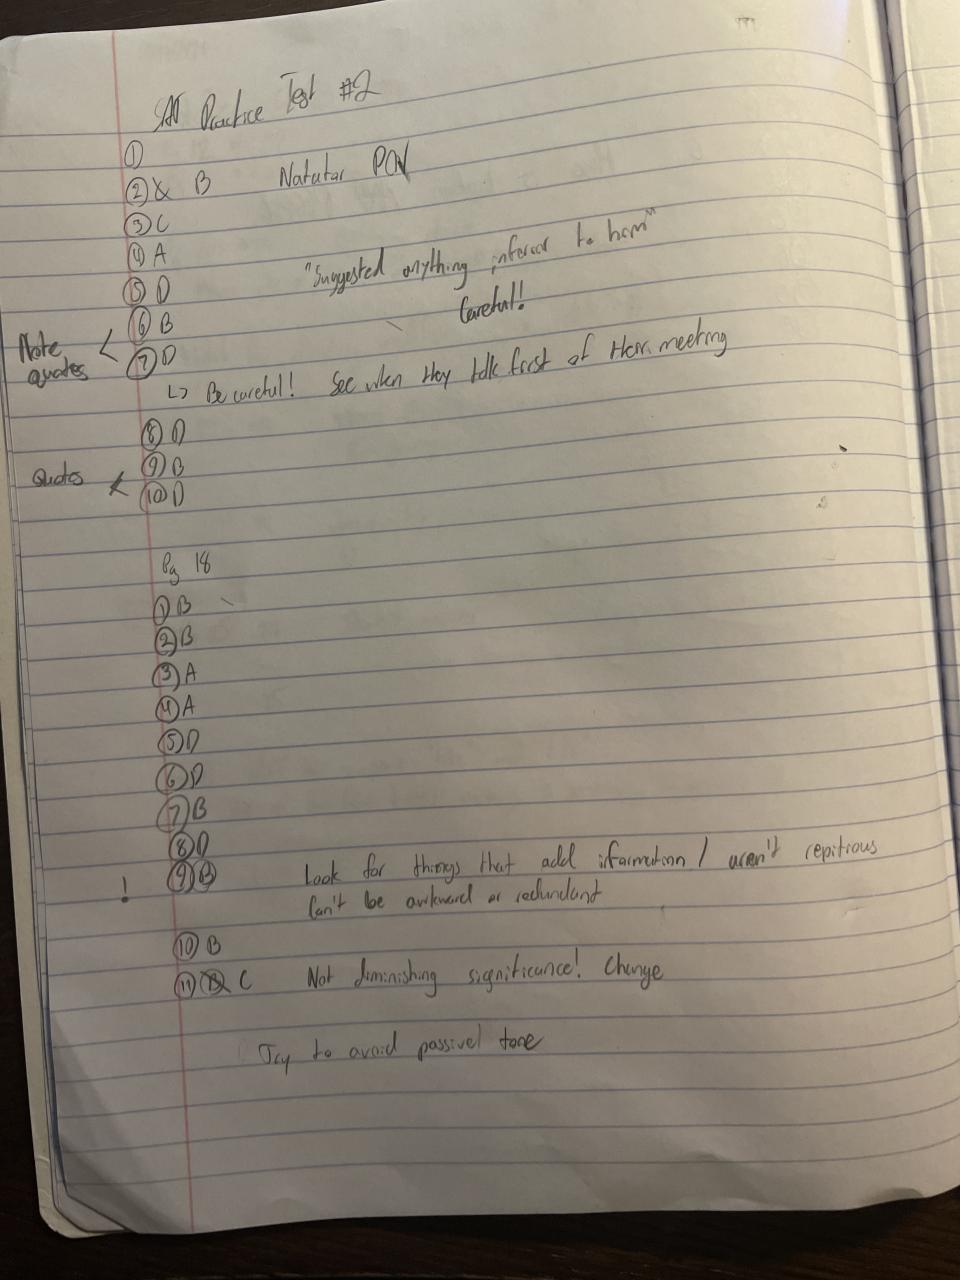 SAT Practice Test #2
①
② B Natutar POV
③ C
④ A
⑤ D "Suggested anything inferior to him"
⑥ B Careful!
Note quotes < ⑦ D
↳ Be careful! See when they talk first of their meeting
⑧ D
⑨ B
Quotes < ⑩ D
Pg 18
① B
② B
③ A
④ A
⑤ D
⑥ D
⑦ B
⑧ D
! ⑨ B Look for things that add information / aren't repitious
Can't be awkward or redundant
⑩ B
⑪ C Not diminishing significance! Change
Try to avoid passivel tone